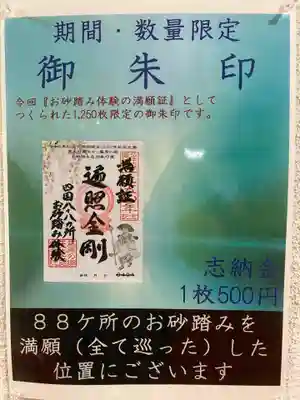 期間・数量限定
御朱印
今回『お砂踏み体験の満願証』として
つくられた1,250枚限定の御朱印です。
満願証
遍照金剛
四国八十八ヶ所
お砂踏み体験
志納金
1枚500円
88ケ所のお砂踏みを
満願（全て巡った）した
位置にございます